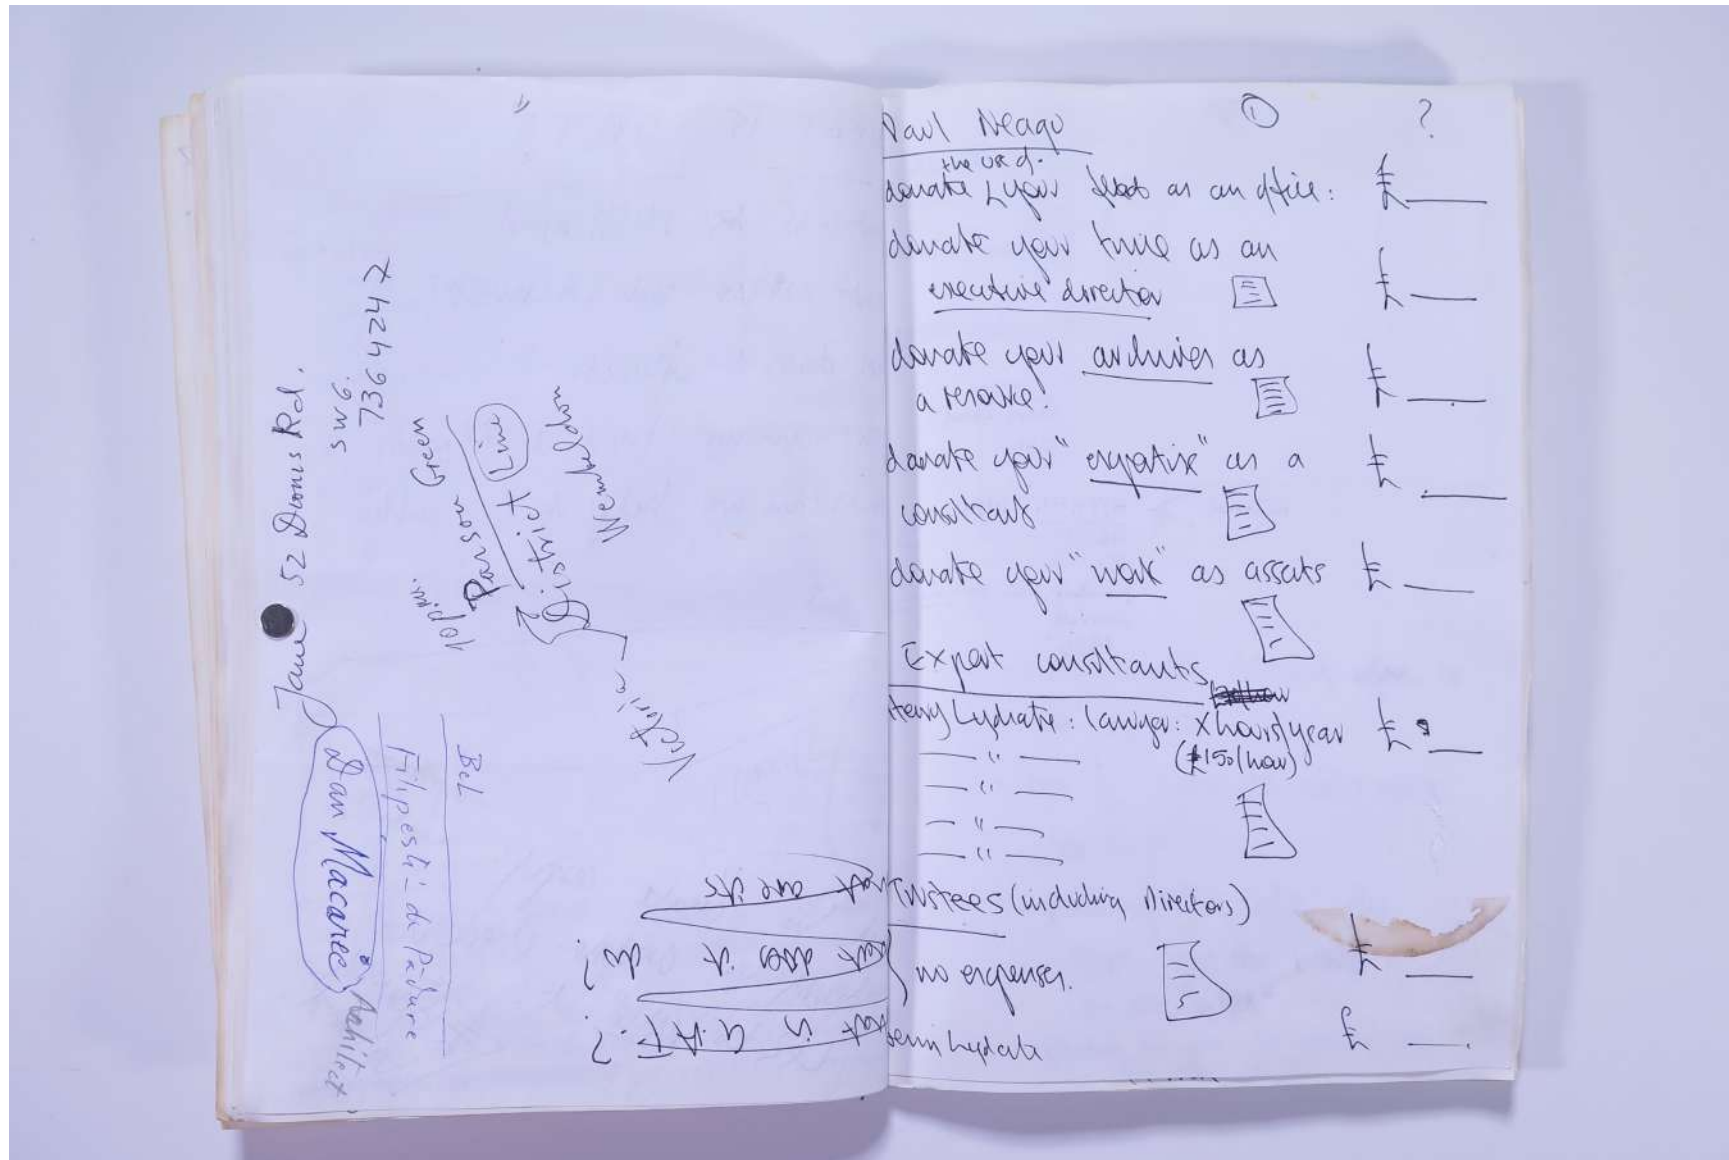 Jane 52 Doms Rd.
SW6
736 4247
Parson Green
District Line
Wembeldon
Victoria
Dan Macarie, Architect
Filipesti-de Pădure
Bel
What are its
What does it do?
What is G.A.F.?
Paul Neagu
1
?
the use of
donate your flat as an office: £
donate your time as an
executive director £
donate your archives as
a resource. £
donate your "expertise" as a £
consultant
donate your "work" as assets £
Expert consultants
Henry Lydiate: lawyer: x hours/year £
(£150/hour)
— " —
— " —
— " —
— " —
Trustees (including Directors)
no expenses. £
Lydiate £